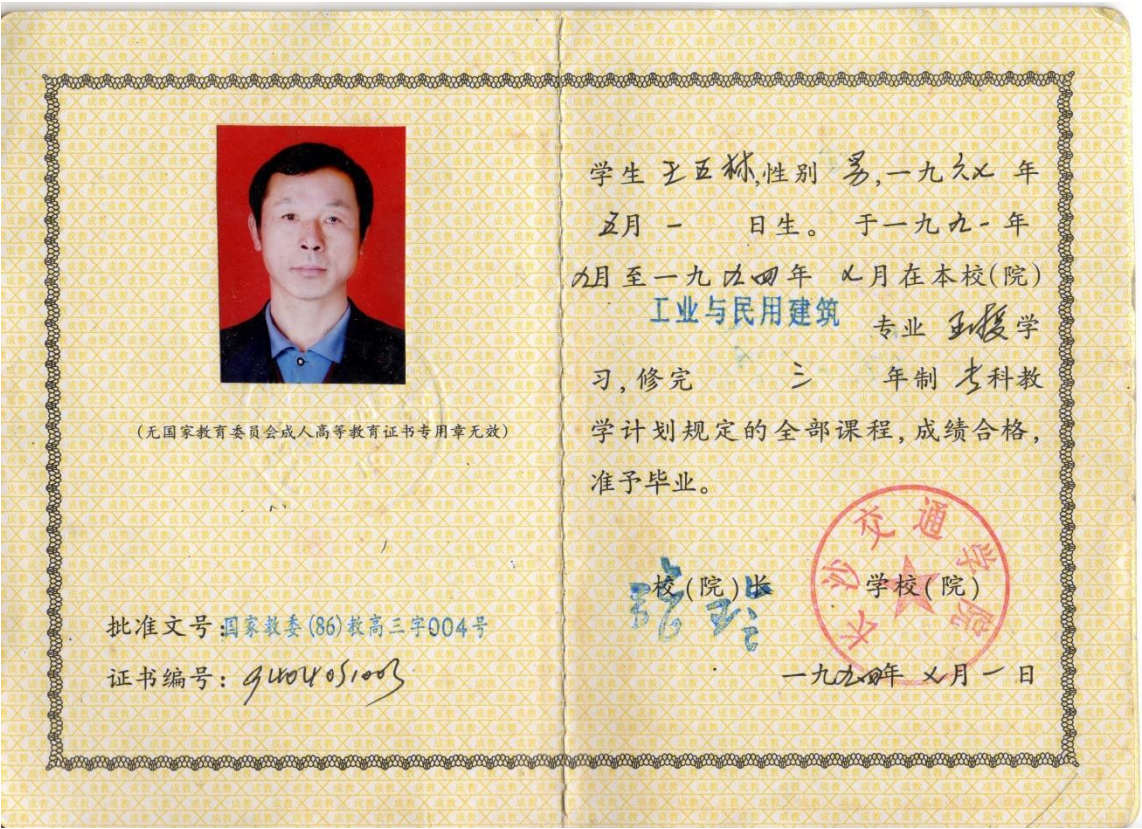 (无国家教育委员会成人高等教育证书专用章无效)
批准文号:国家教委(86)教高三字004号
证书编号:
学生 王五林,性别 男,一九六七 年
五月 一 日生。 于一九九一年
九月至一九九四年 七月在本校(院)
工业与民用建筑
专业 函授学
习,修完 三 年制 专科教
学计划规定的全部课程,成绩合格,
准予毕业。
校(院)长
学校(院)
长沙交通学院
一九九四年 七月一日